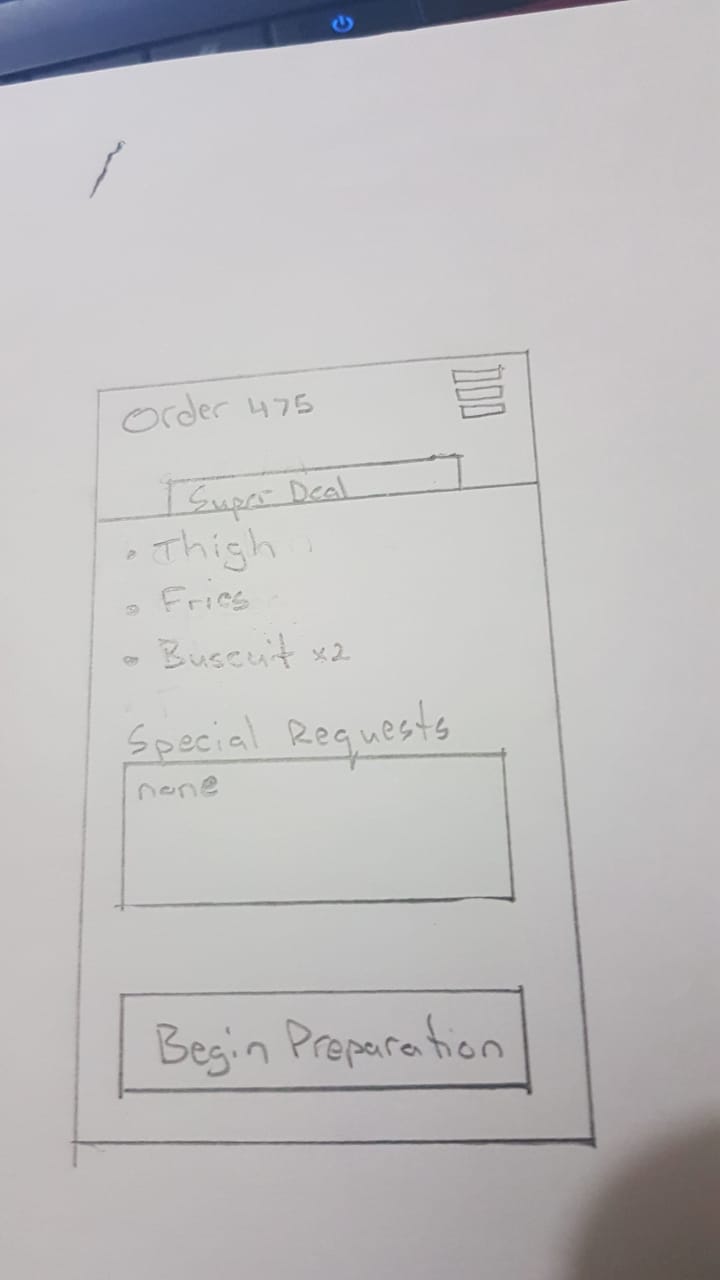 Order 475
Super Deal
• Thigh
• Fries
• Buscuit x2
Special Requests
none
Begin Preparation